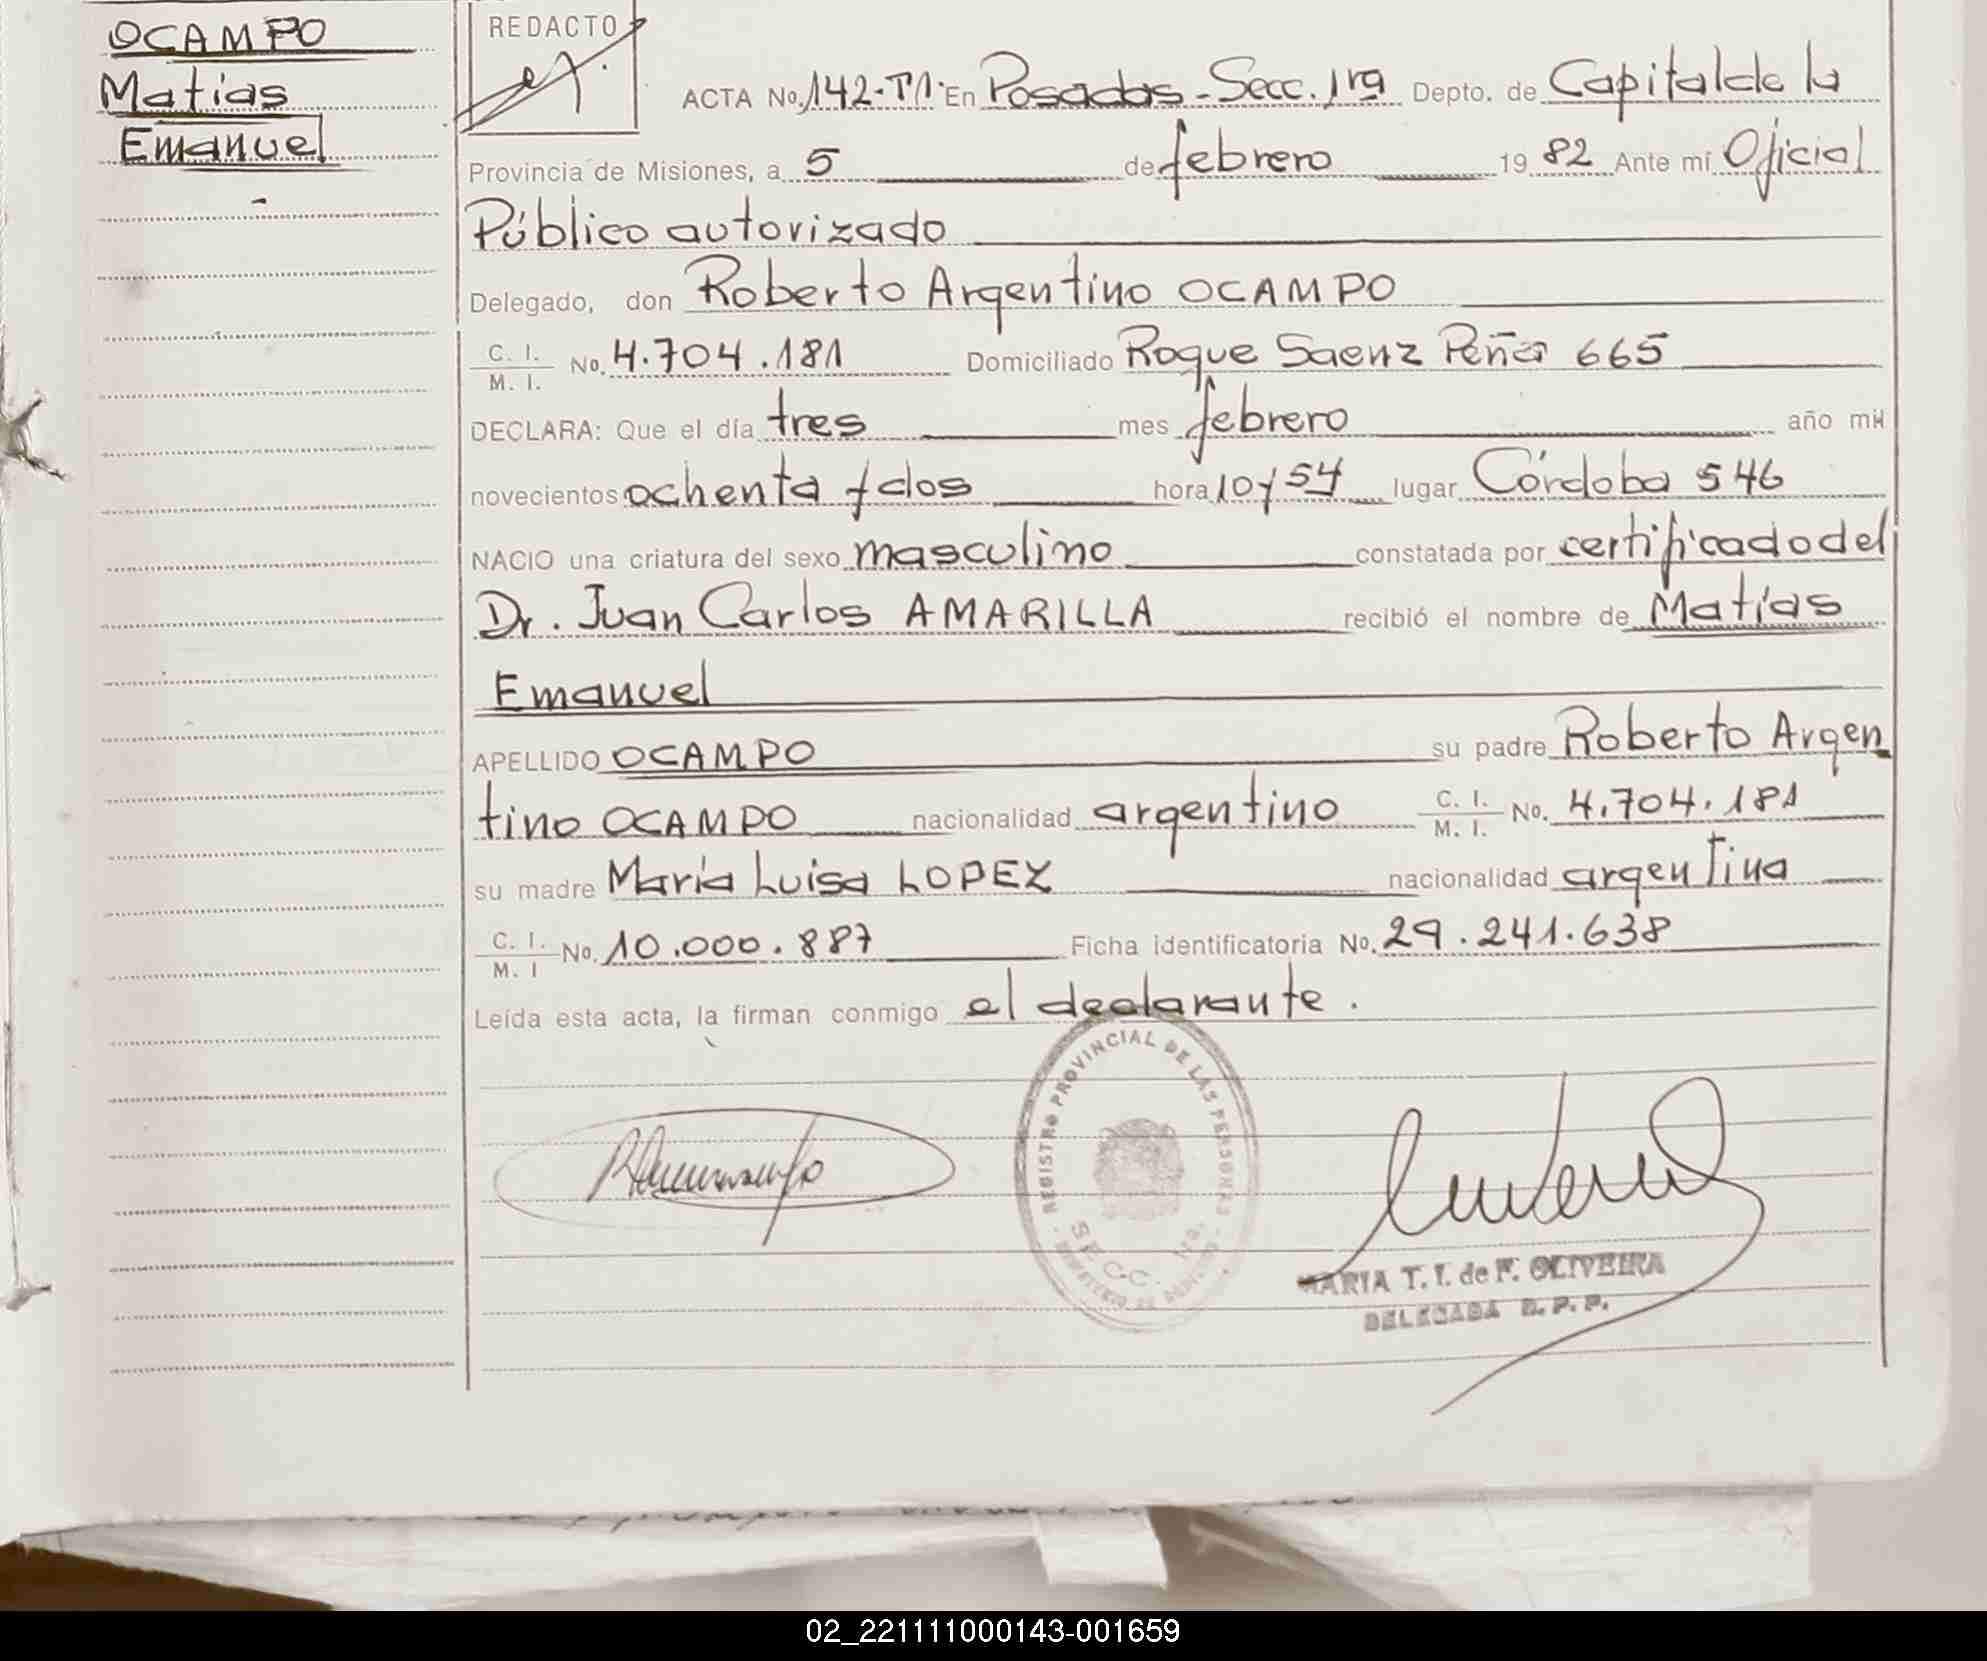 OCAMPO
Matías
Emanuel
REDACTO
ACTA No. 142-T1. En Posadas-Secc. 1ra Depto. de Capital de la
Provincia de Misiones, a 5 de febrero 19 82 Ante mí Oficial
Público autorizado
Delegado, don Roberto Argentino OCAMPO
C. I.
M. I. No. 4.704.181 Domiciliado Roque Saenz Peña 665
DECLARA: Que el día tres mes febrero año mil
novecientos ochenta y dos hora 10 y 54 lugar Córdoba 546
NACIO una criatura del sexo masculino constatada por certificado del
Dr. Juan Carlos AMARILLA recibió el nombre de Matías
Emanuel
APELLIDO OCAMPO su padre Roberto Argen
tino OCAMPO nacionalidad argentino C. I.
M. I. No. 4.704.181
su madre María Luisa LOPEZ nacionalidad argentina
C. I.
M. I No. 10.000.887 Ficha identificatoria No. 29.241.638
Leída esta acta, la firman conmigo el declarante.
REGISTRO PROVINCIAL DE LAS PERSONAS
SECC. 1ra.
MARIA T. I. de F. OLIVEIRA
DELEGADA R. P. P.
02_221111000143-001659